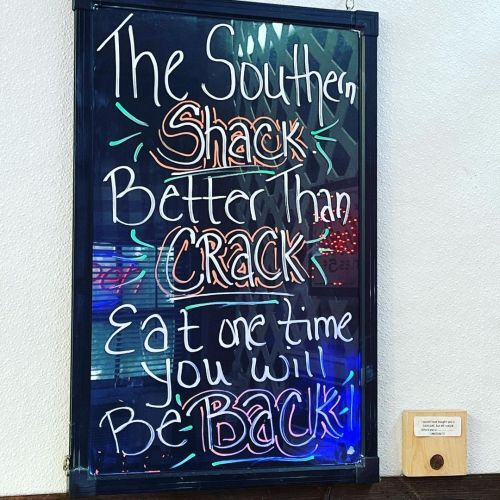 The Southern
Shack
Better Than
CRACK
Eat one time
you will
Be BACK